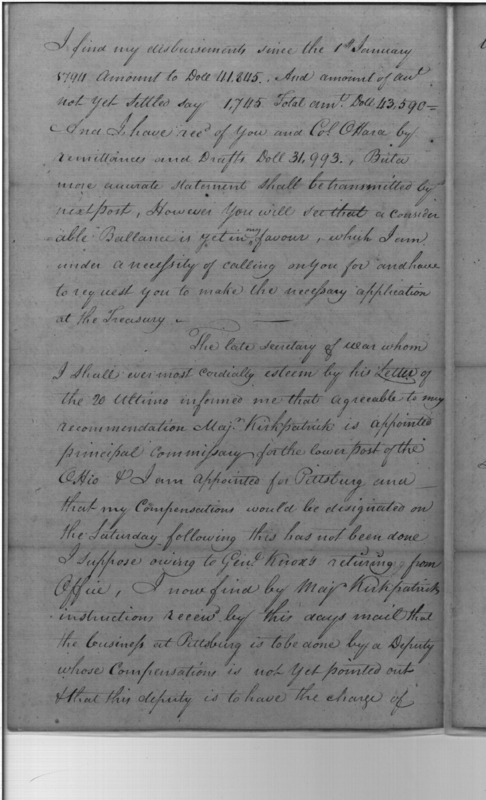 I find my disbursements since the 1st January
1794 Amount to Doll 41,845. And amount of acct
not yet settled say 1,745 Total amt. Doll 43,590=
And I have recd of You and Col OHara by
remittances and Drafts Doll 31,993., But a
more accurate statement shall be transmitted by
next post, However You will see that a consider
able Ballance is yet in my favour, which I am
under a necessity of calling on you for and have
to request you to make the necessary application
at the Treasury
The late secretary of war whom
I shall ever most cordially esteem by his Letter of
the 20 Ultimo informed me that agreeable to my
recommendation Majr. Kirkpatrick is appointed
principal Commissary for the lower post of the
Ohio & I am appointed for Pittsburg and
that my Compensations would be designated on
the Saturday following this has not been done
I suppose owing to Genl Knox's retiring from
Office, I now find by Majr Kirkpatricks
instructions receivd by this days mail that
the business at Pittsburg is to be done by a Deputy
whose Compensations is not Yet pointed out
& that this deputy is to have the charge of